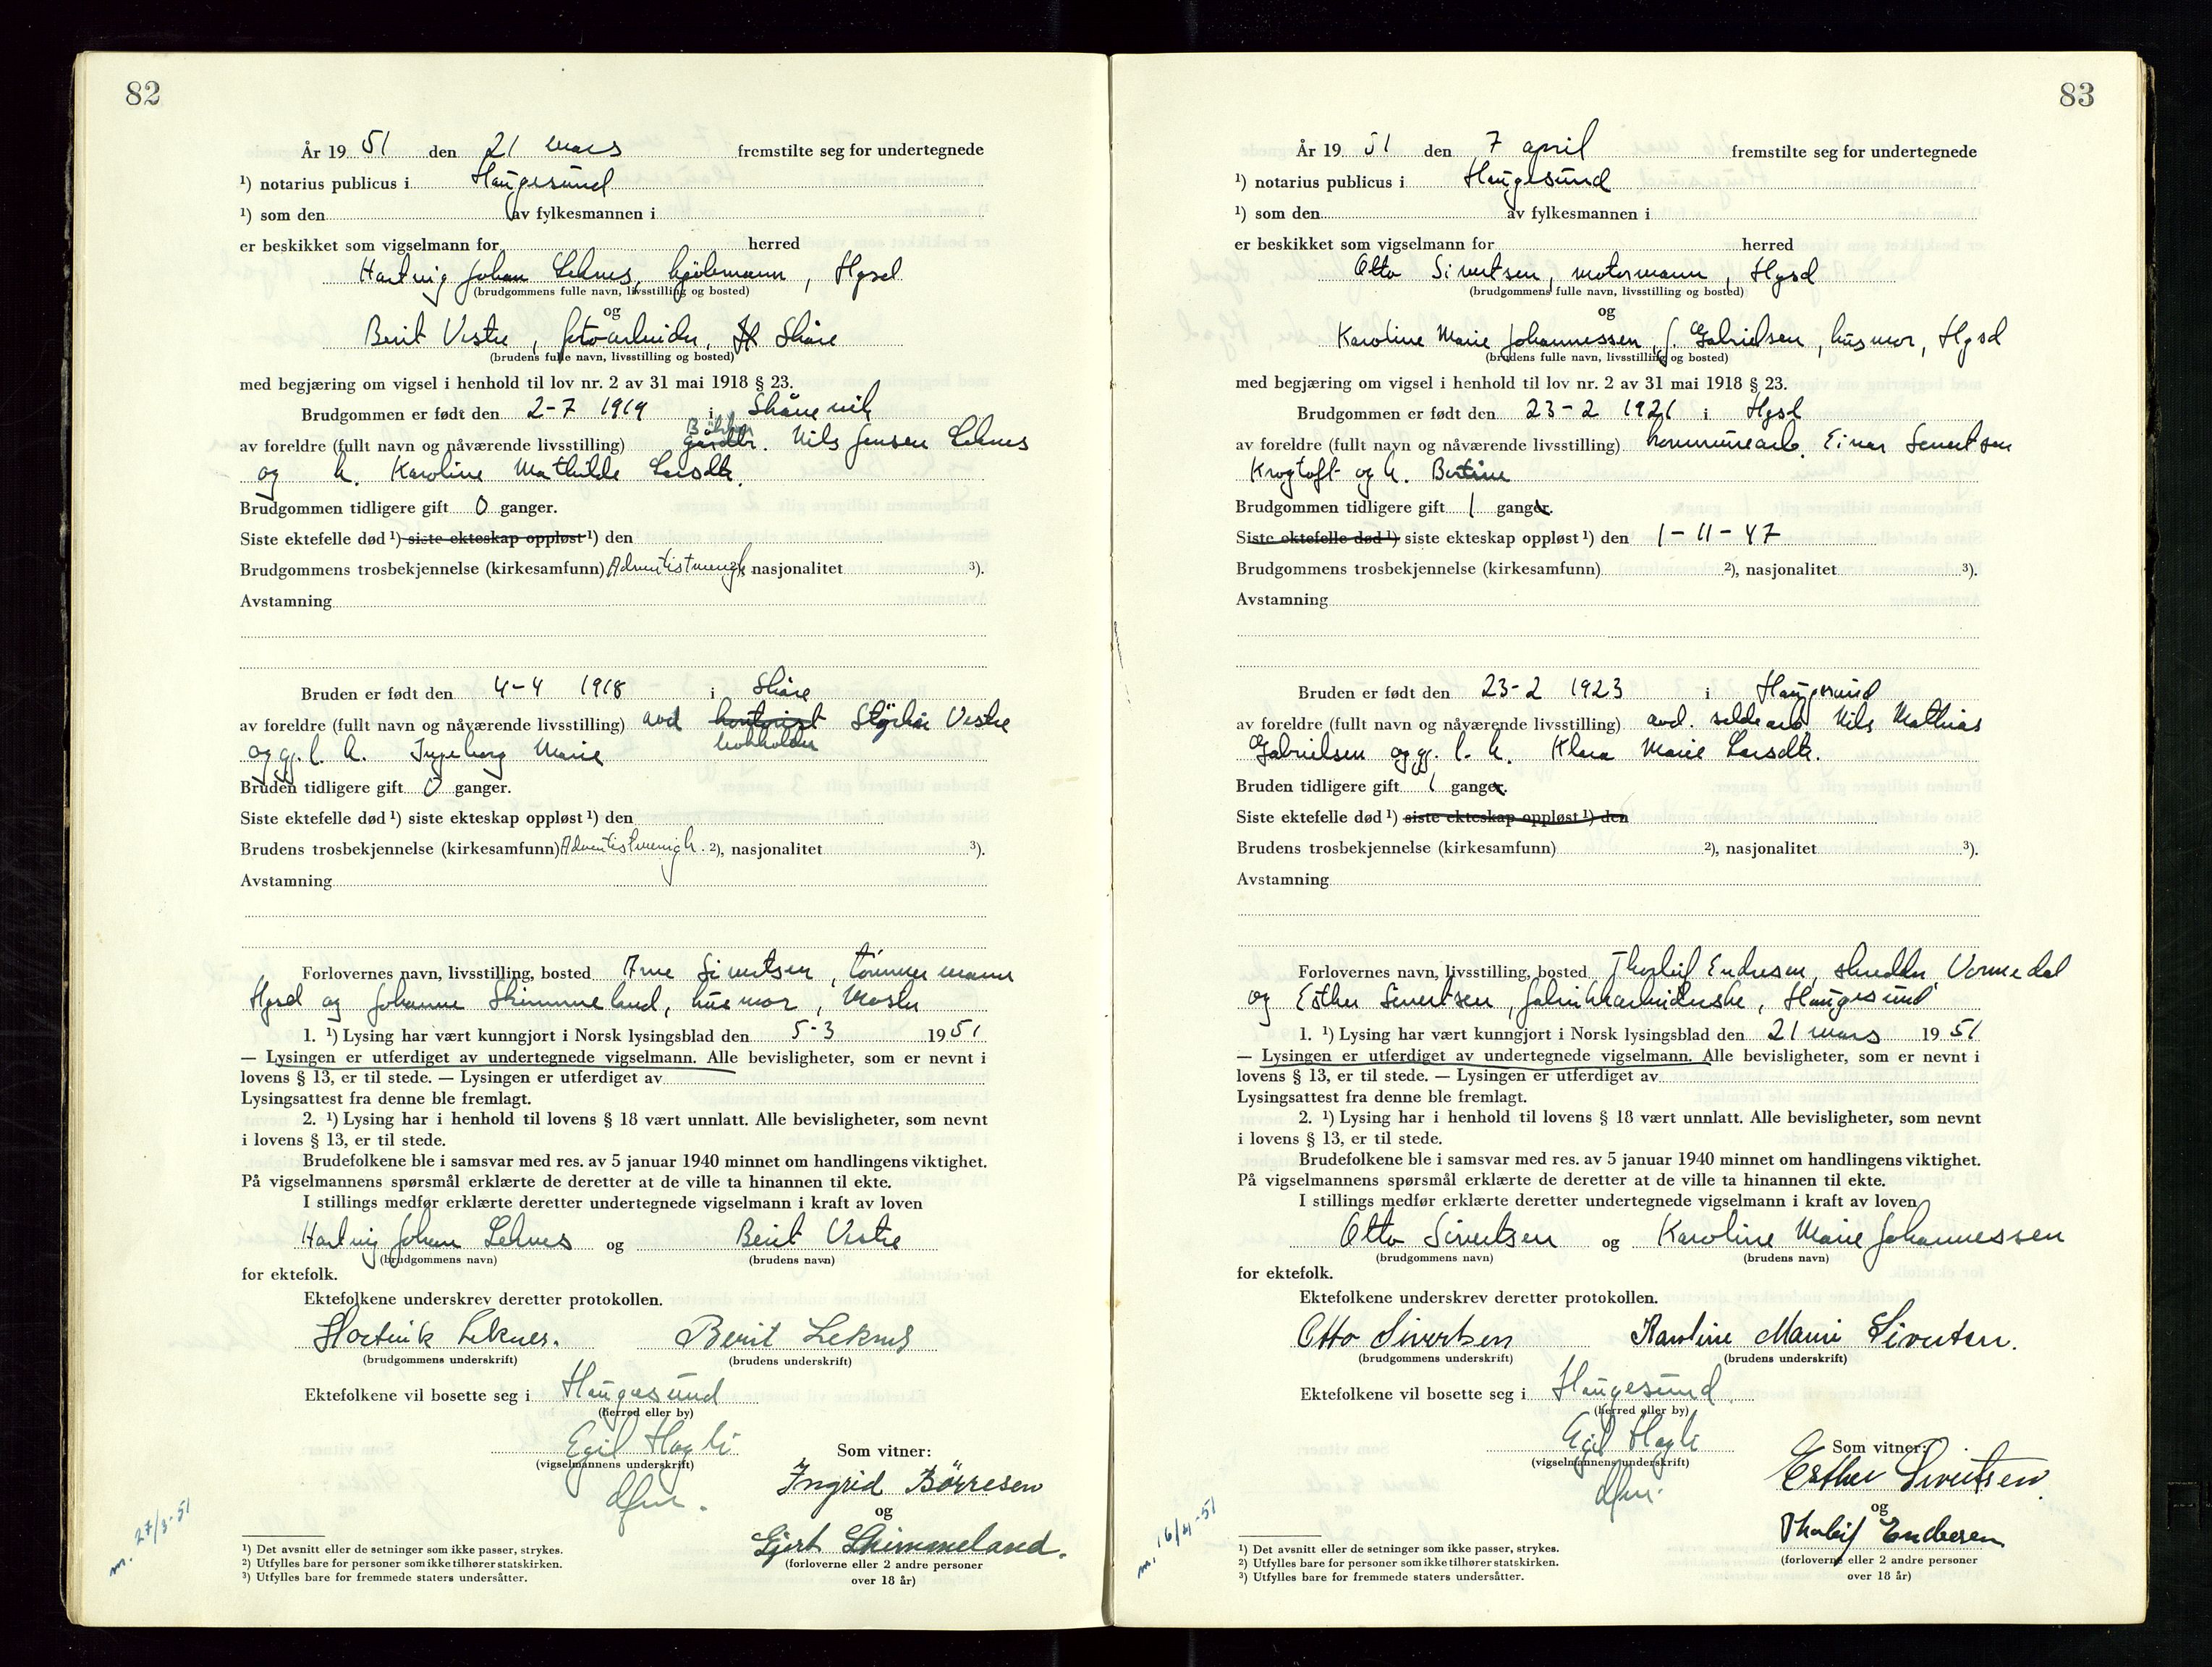 82
År 19 51 den 21 mars fremstilte seg for undertegnede
¹) notarius publicus i Haugesund
¹) som den av fylkesmannen i
er beskikket som vigselmann for herred
Hartvig Johan Leknes, kjølemann, Hgsd
(brudgommens fulle navn, livsstilling og bosted)
og
Berit Vestre, fotoarbeider, Skåre
(brudens fulle navn, livsstilling og bosted)
med begjæring om vigsel i henhold til lov nr. 2 av 31 mai 1918 § 23.
Brudgommen er født den 2-7 1919 i Skånevik
av foreldre (fullt navn og nåværende livsstilling) gårdbr. Nils Jensen Leknes
og h. Karoline Mathilde Larsdtr.
Brudgommen tidligere gift 0 ganger.
Siste ektefelle død ¹) siste ekteskap oppløst ¹) den
Brudgommens trosbekjennelse (kirkesamfunn) Adventistmengh. nasjonalitet ³).
Avstamning
Bruden er født den 4-4 1918 i Skåre
av foreldre (fullt navn og nåværende livsstilling) avd kontorist Styrkår Vestre
bokholder
og gj. l. h. Ingeborg Marie
Bruden tidligere gift 0 ganger.
Siste ektefelle død ¹) siste ekteskap oppløst ¹) den
Brudens trosbekjennelse (kirkesamfunn) Adventistmenigh. ²), nasjonalitet ³).
Avstamning
Forlovernes navn, livsstilling, bosted Arne Sivertsen, tømmermann
Hgsd og Johanne Skimmeland, husmor, Moster
1. ¹) Lysing har vært kunngjort i Norsk lysingsblad den 5-3 19 51
— Lysingen er utferdiget av undertegnede vigselmann. Alle bevisligheter, som er nevnt i
lovens § 13, er til stede. — Lysingen er utferdiget av
Lysingsattest fra denne ble fremlagt.
2. ¹) Lysing har i henhold til lovens § 18 vært unnlatt. Alle bevisligheter, som nevnt
i lovens § 13, er til stede.
Brudefolkene ble i samsvar med res. av 5 januar 1940 minnet om handlingens viktighet.
På vigselmannens spørsmål erklærte de deretter at de ville ta hinannen til ekte.
I stillings medfør erklærte deretter undertegnede vigselmann i kraft av loven
Hartvig Johan Leknes og Berit Vestre
(brudgommens navn) (brudens navn)
for ektefolk.
Ektefolkene underskrev deretter protokollen.
Hartvik Leknes. Berit Leknes
(brudgommens underskrift) (brudens underskrift)
Ektefolkene vil bosette seg i Haugesund
(herred eller by)
Egil Hagli
(vigselmannens underskrift)
dfm.
Som vitner:
Ingrid Börresen
og
Gjert Skimmeland.
(forloverne eller 2 andre personer
over 18 år)
m. 27/3-51
¹) Det avsnitt eller de setninger som ikke passer, strykes.
²) Utfylles bare for personer som ikke tilhører statskirken.
³) Utfylles bare for fremmede staters undersåtter.
83
År 19 51 den 7 april fremstilte seg for undertegnede
¹) notarius publicus i Haugesund
¹) som den av fylkesmannen i
er beskikket som vigselmann for herred
Otto Sivertsen, motormann, Hgsd
(brudgommens fulle navn, livsstilling og bosted)
og
Karoline Marie Johannessen, f. Gabrielsen, husmor, Hgsd
(brudens fulle navn, livsstilling og bosted)
med begjæring om vigsel i henhold til lov nr. 2 av 31 mai 1918 § 23.
Brudgommen er født den 23-2 1921 i Hgsd
av foreldre (fullt navn og nåværende livsstilling) kommunearb. Einar Severtsen
Krogtoft og h. Bertine
Brudgommen tidligere gift 1 ganger.
Siste ektefelle død ¹) siste ekteskap oppløst ¹) den 1-11-47
Brudgommens trosbekjennelse (kirkesamfunn) ²), nasjonalitet ³).
Avstamning
Bruden er født den 23-2 1923 i Haugesund
av foreldre (fullt navn og nåværende livsstilling) avd. sildearb. Nils Mathias
Gabrielsen og gj. l. h. Klara Marie Larsdtr.
Bruden tidligere gift 1 ganger.
Siste ektefelle død ¹) siste ekteskap oppløst ¹) den
Brudens trosbekjennelse (kirkesamfunn) ²), nasjonalitet ³).
Avstamning
Forlovernes navn, livsstilling, bosted Thorleif Endresen, skredder Vormedal
og Esther Severtsen, fabrikkarbeiderske, Haugesund
1. ¹) Lysing har vært kunngjort i Norsk lysingsblad den 21 mars 19 51
— Lysingen er utferdiget av undertegnede vigselmann. Alle bevisligheter, som er nevnt i
lovens § 13, er til stede. — Lysingen er utferdiget av
Lysingsattest fra denne ble fremlagt.
2. ¹) Lysing har i henhold til lovens § 18 vært unnlatt. Alle bevisligheter, som nevnt
i lovens § 13, er til stede.
Brudefolkene ble i samsvar med res. av 5 januar 1940 minnet om handlingens viktighet.
På vigselmannens spørsmål erklærte de deretter at de ville ta hinannen til ekte.
I stillings medfør erklærte deretter undertegnede vigselmann i kraft av loven
Otto Sivertsen og Karoline Marie Johannessen
(brudgommens navn) (brudens navn)
for ektefolk.
Ektefolkene underskrev deretter protokollen.
Otto Sivertsen Karoline Marie Sivertsen.
(brudgommens underskrift) (brudens underskrift)
Ektefolkene vil bosette seg i Haugesund
(herred eller by)
Egil Hagli
(vigselmannens underskrift)
dfm.
Som vitner:
Esther Sivertsen.
og
Thorleif Endresen
(forloverne eller 2 andre personer
over 18 år)
m. 16/4-51
¹) Det avsnitt eller de setninger som ikke passer, strykes.
²) Utfylles bare for personer som ikke tilhører statskirken.
³) Utfylles bare for fremmede staters undersåtter.